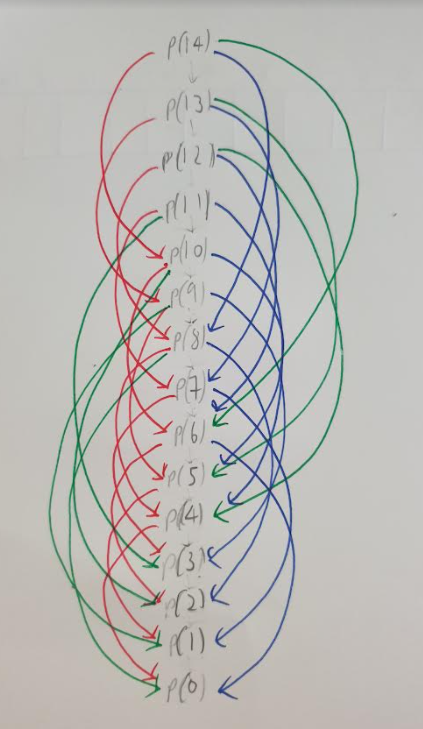 P(14)
P(13)
P(12)
P(11)
P(10)
P(9)
P(8)
P(7)
P(6)
P(5)
P(4)
P(3)
P(2)
P(1)
P(0)